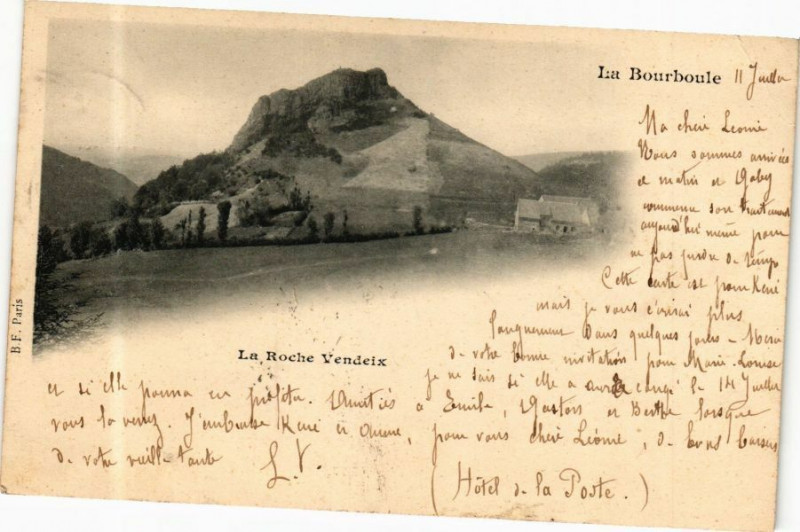 La Bourboule 11 Juillet
Ma chère Léonie
Nous sommes arrivés
ce matin et Gaby
commence son traitement
aujourd'hui même pour
ne pas perdre de temps
Cette carte est pour René
mais je vous écrirai plus
longuement dans quelques jours - Merci
de votre bonne invitation pour Marie-Louise
je ne sais si elle a aura congé le 14 Juillet
et si elle pourra en profiter. Amitiés à Emile, Gaston et Berthe lorsque
vous la verrez. J'embrasse René et, pour vous chère Léonie, de bons baisers
de votre vieille tante L. V.
(Hôtel de la Poste.)
La Roche Vendeix
B.F. Paris